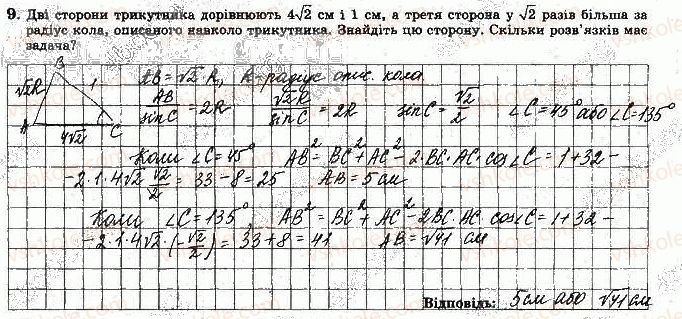 9. Дві сторони трикутника дорівнюють 4√2 см і 1 см, а третя сторона у √2 разів більша за
радіус кола, описаного навколо трикутника. Знайдіть цю сторону. Скільки розв'язків має
задача?
B
√2R
1
A
4√2
C
AB = √2 · R, R – радіус опис. кола.
AB/sinC = 2R √2R/sinC = 2R sinC = √2/2 ∠C = 45° або ∠C = 135°
Коли ∠C = 45° AB² = BC² + AC² – 2·BC·AC·cos∠C = 1 + 32 –
– 2·1·4√2 · √2/2 = 33 – 8 = 25 AB = 5 см
Коли ∠C = 135°, AB² = BC² + AC² – 2BC·AC·cos∠C = 1 + 32 –
– 2·1·4√2 · (–√2/2) = 33 + 8 = 41 AB = √41 см
Відповідь: 5 см або √41 см